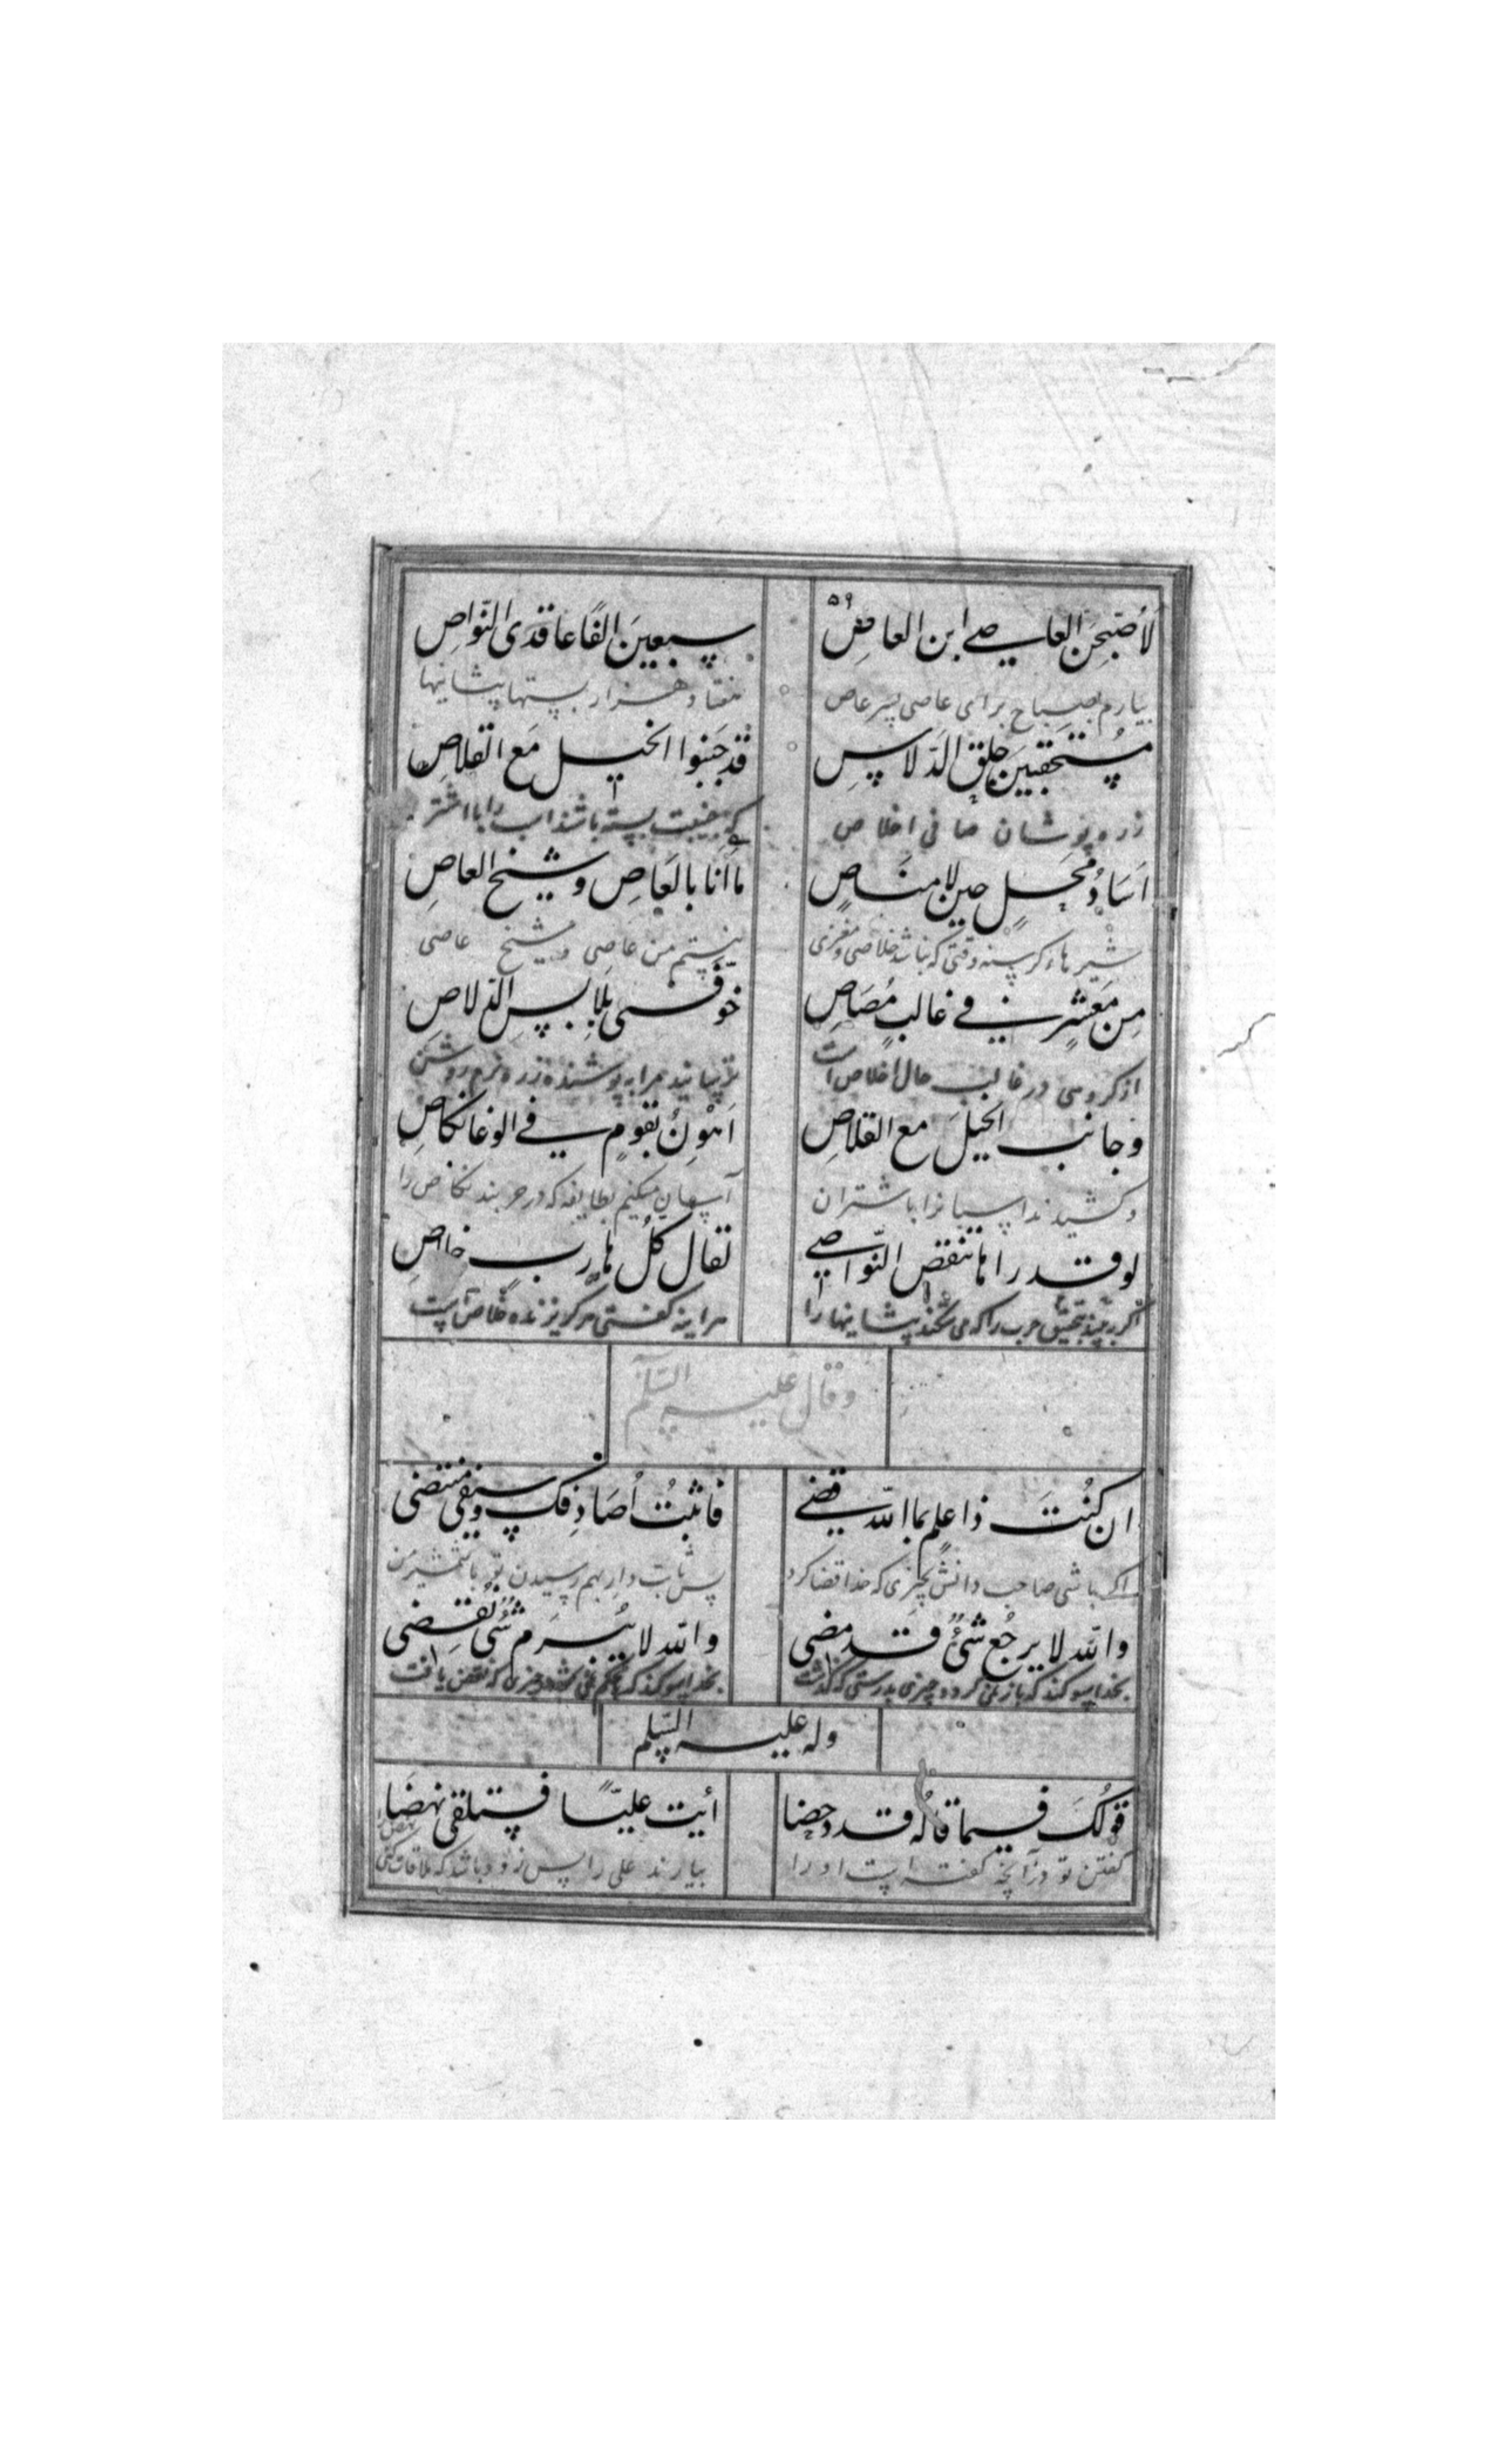 ۵۹
لَأُصَبِّحَنَّ العاصے ابن العاصِ سبعینَ الفًا عاقدی النّواصِ
بیارم بصباح برای عاصی پسر عاص هفتاد هزار بستها پیشانیها
مُستَحقِبینَ حلق الدّلاصِ قد جَنَبوا الخیل مَع القلاصِ
زره پوشان صافی اخلاص که جنیبت بسته باشند اسب را با اشتر
اَسَادُ مَحلٍ حین لا مناصٍ ما اَنا بالعَاصِ و شیخ العاصِ
شیرهاء گرسنه وقتی که نباشد خلاصی و مفری نیستم من عاصی و شیخ عاصی
مِن مَعشرٍ فے غالبٍ مُصَاصِ خوّفنی بلابسِ الدّلاصِ
از گروهی در غالب حال اخلاص است ترسانید مرا به پوشنده زره نرم روشن
وجانب الخیلَ مع القلاصِ اَهْوِنْ بقومٍ فے الوغا نکاصِ
و کشیدند اسپانرا باشتران آسان میکنم بطایفه که در حربند نکاص را
لو قد راها تنفض النّواصے لقال کلّ هاربٍ خلاصِ
اگر بیند بتحقیق حرب را که می شکند پیشانیها را هراینه گفتی هر گریزنده خلاص نیست
وقال علیه السّلم
ان کُنتَ ذا علمٍ بما اللّٰه قضے فاثبُت اُصَادِفک وسیفی منتضی
اگر باشی صاحب دانش بچیزی که خدا قضا کرد پس ثابت دار بهم رسیدن تو با شمشیر من
واللّٰه لا یرجُع شیءٌ قد مضی واللّٰه لا یُبرَم شیءٌ نُقِضی
بخدا سوگند که باز نمی گردد چیزی بدرستی که گذشت بخدا سوگند که محکم نمی شود چیزی که نقض یافت
وله علیه السّلم
قولُکَ فیما قالهُ قد دحضا أیت علیّاً فستلقی نهضا
گفتن تو درآنچه گفته است او را بیارند علی را پس زود باشد که ملاقات کنی